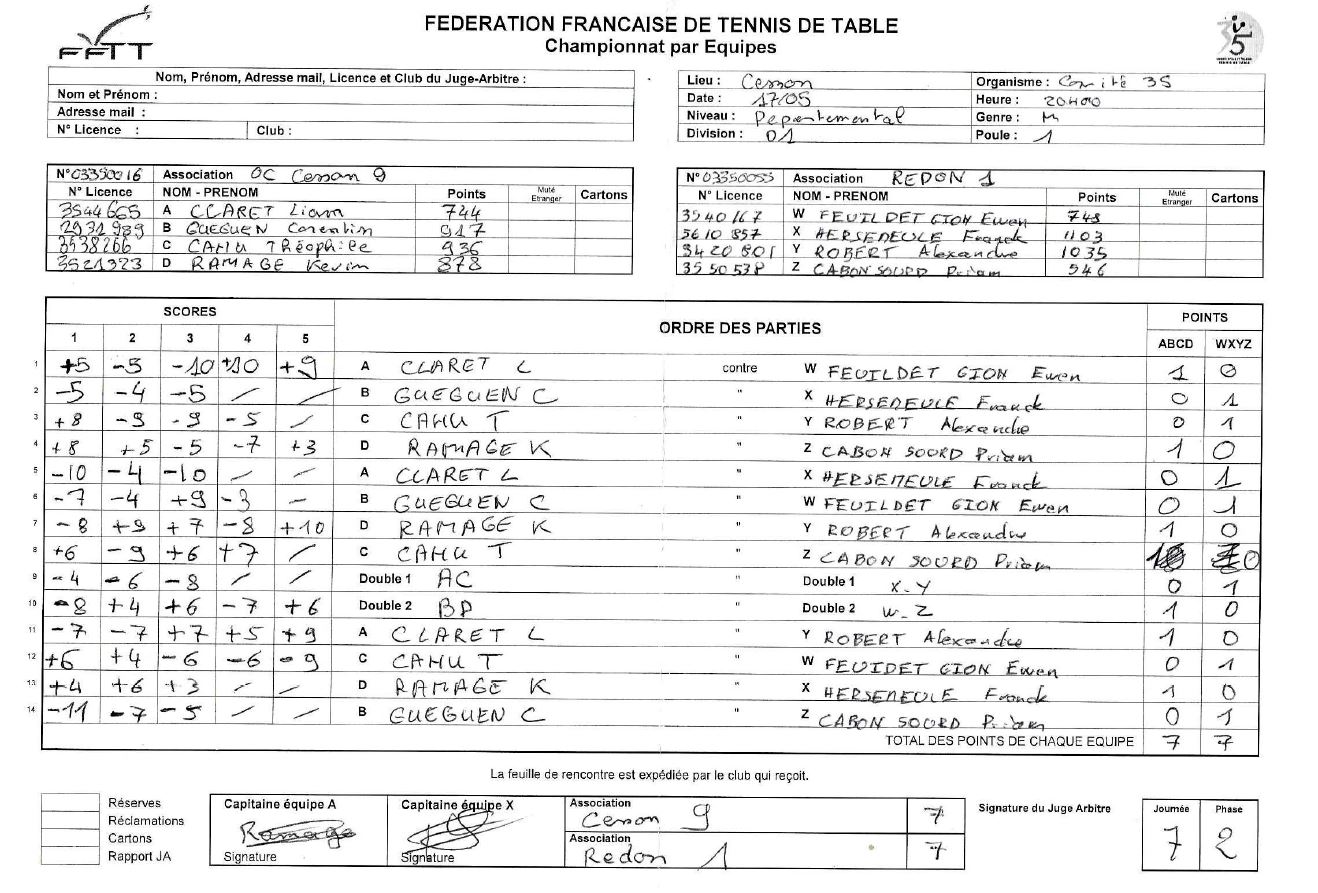 FEDERATION FRANCAISE DE TENNIS DE TABLE
Championnat par Equipes
FFTT
Nom, Prénom, Adresse mail, Licence et Club du Juge-Arbitre :
Nom et Prénom :
Adresse mail :
N° Licence : Club :
Lieu : Cesson Organisme : Comité 35
Date : 17/05 Heure : 20H00
Niveau : Departemental Genre : M
Division : D1 Poule : 1
N°03350016 Association OC Cesson 9
N° Licence NOM - PRENOM Points Muté Etranger Cartons
3544665 A CLARET Liam 744
2931989 B GUEGUEN Corentin 917
3538266 C CAHU Théophile 936
3521323 D RAMAGE Kevin 878
N°03350055 Association REDON 1
N° Licence NOM - PRENOM Points Muté Etranger Cartons
3540167 W FEUILDET GION Ewen 748
5610857 X HERSEMEULE Franck 1103
3420801 Y ROBERT Alexandre 1035
3550538 Z CABON SOURD Priam 946
SCORES ORDRE DES PARTIES POINTS
1 2 3 4 5 ABCD WXYZ
1 +5 -5 -10 +10 +9 A CLARET L contre W FEUILDET GION Ewen 1 0
2 -5 -4 -5 / / B GUEGUEN C " X HERSEMEULE Franck 0 1
3 +8 -9 -9 -5 / C CAHU T " Y ROBERT Alexandre 0 1
4 +8 +5 -5 -7 +3 D RAMAGE K " Z CABON SOURD Priam 1 0
5 -10 -4 -10 / / A CLARET L " X HERSEMEULE Franck 0 1
6 -7 -4 +9 -3 - B GUEGUEN C " W FEUILDET GION Ewen 0 1
7 -8 +9 +7 -8 +10 D RAMAGE K " Y ROBERT Alexandre 1 0
8 +6 -9 +6 +7 / C CAHU T " Z CABON SOURD Priam 1 0
9 -4 -6 -8 / / Double 1 AC " Double 1 X-Y 0 1
10 -8 +4 +6 -7 +6 Double 2 BD " Double 2 W-Z 1 0
11 -7 -7 +7 +5 +9 A CLARET L " Y ROBERT Alexandre 1 0
12 +6 +4 -6 -6 -9 C CAHU T " W FEUIDET GION Ewen 0 1
13 +4 +6 +3 / / D RAMAGE K " X HERSEMEULE Franck 1 0
14 -11 -7 -5 / / B GUEGUEN C " Z CABON SOURD Priam 0 1
TOTAL DES POINTS DE CHAQUE EQUIPE 7 7
La feuille de rencontre est expédiée par le club qui reçoit.
Réserves
Réclamations
Cartons
Rapport JA
Capitaine équipe A
Ramage
Signature
Capitaine équipe X
Signature
Association
Cesson 9 7
Association
Redon 1 7
Signature du Juge Arbitre
Journée Phase
7 2